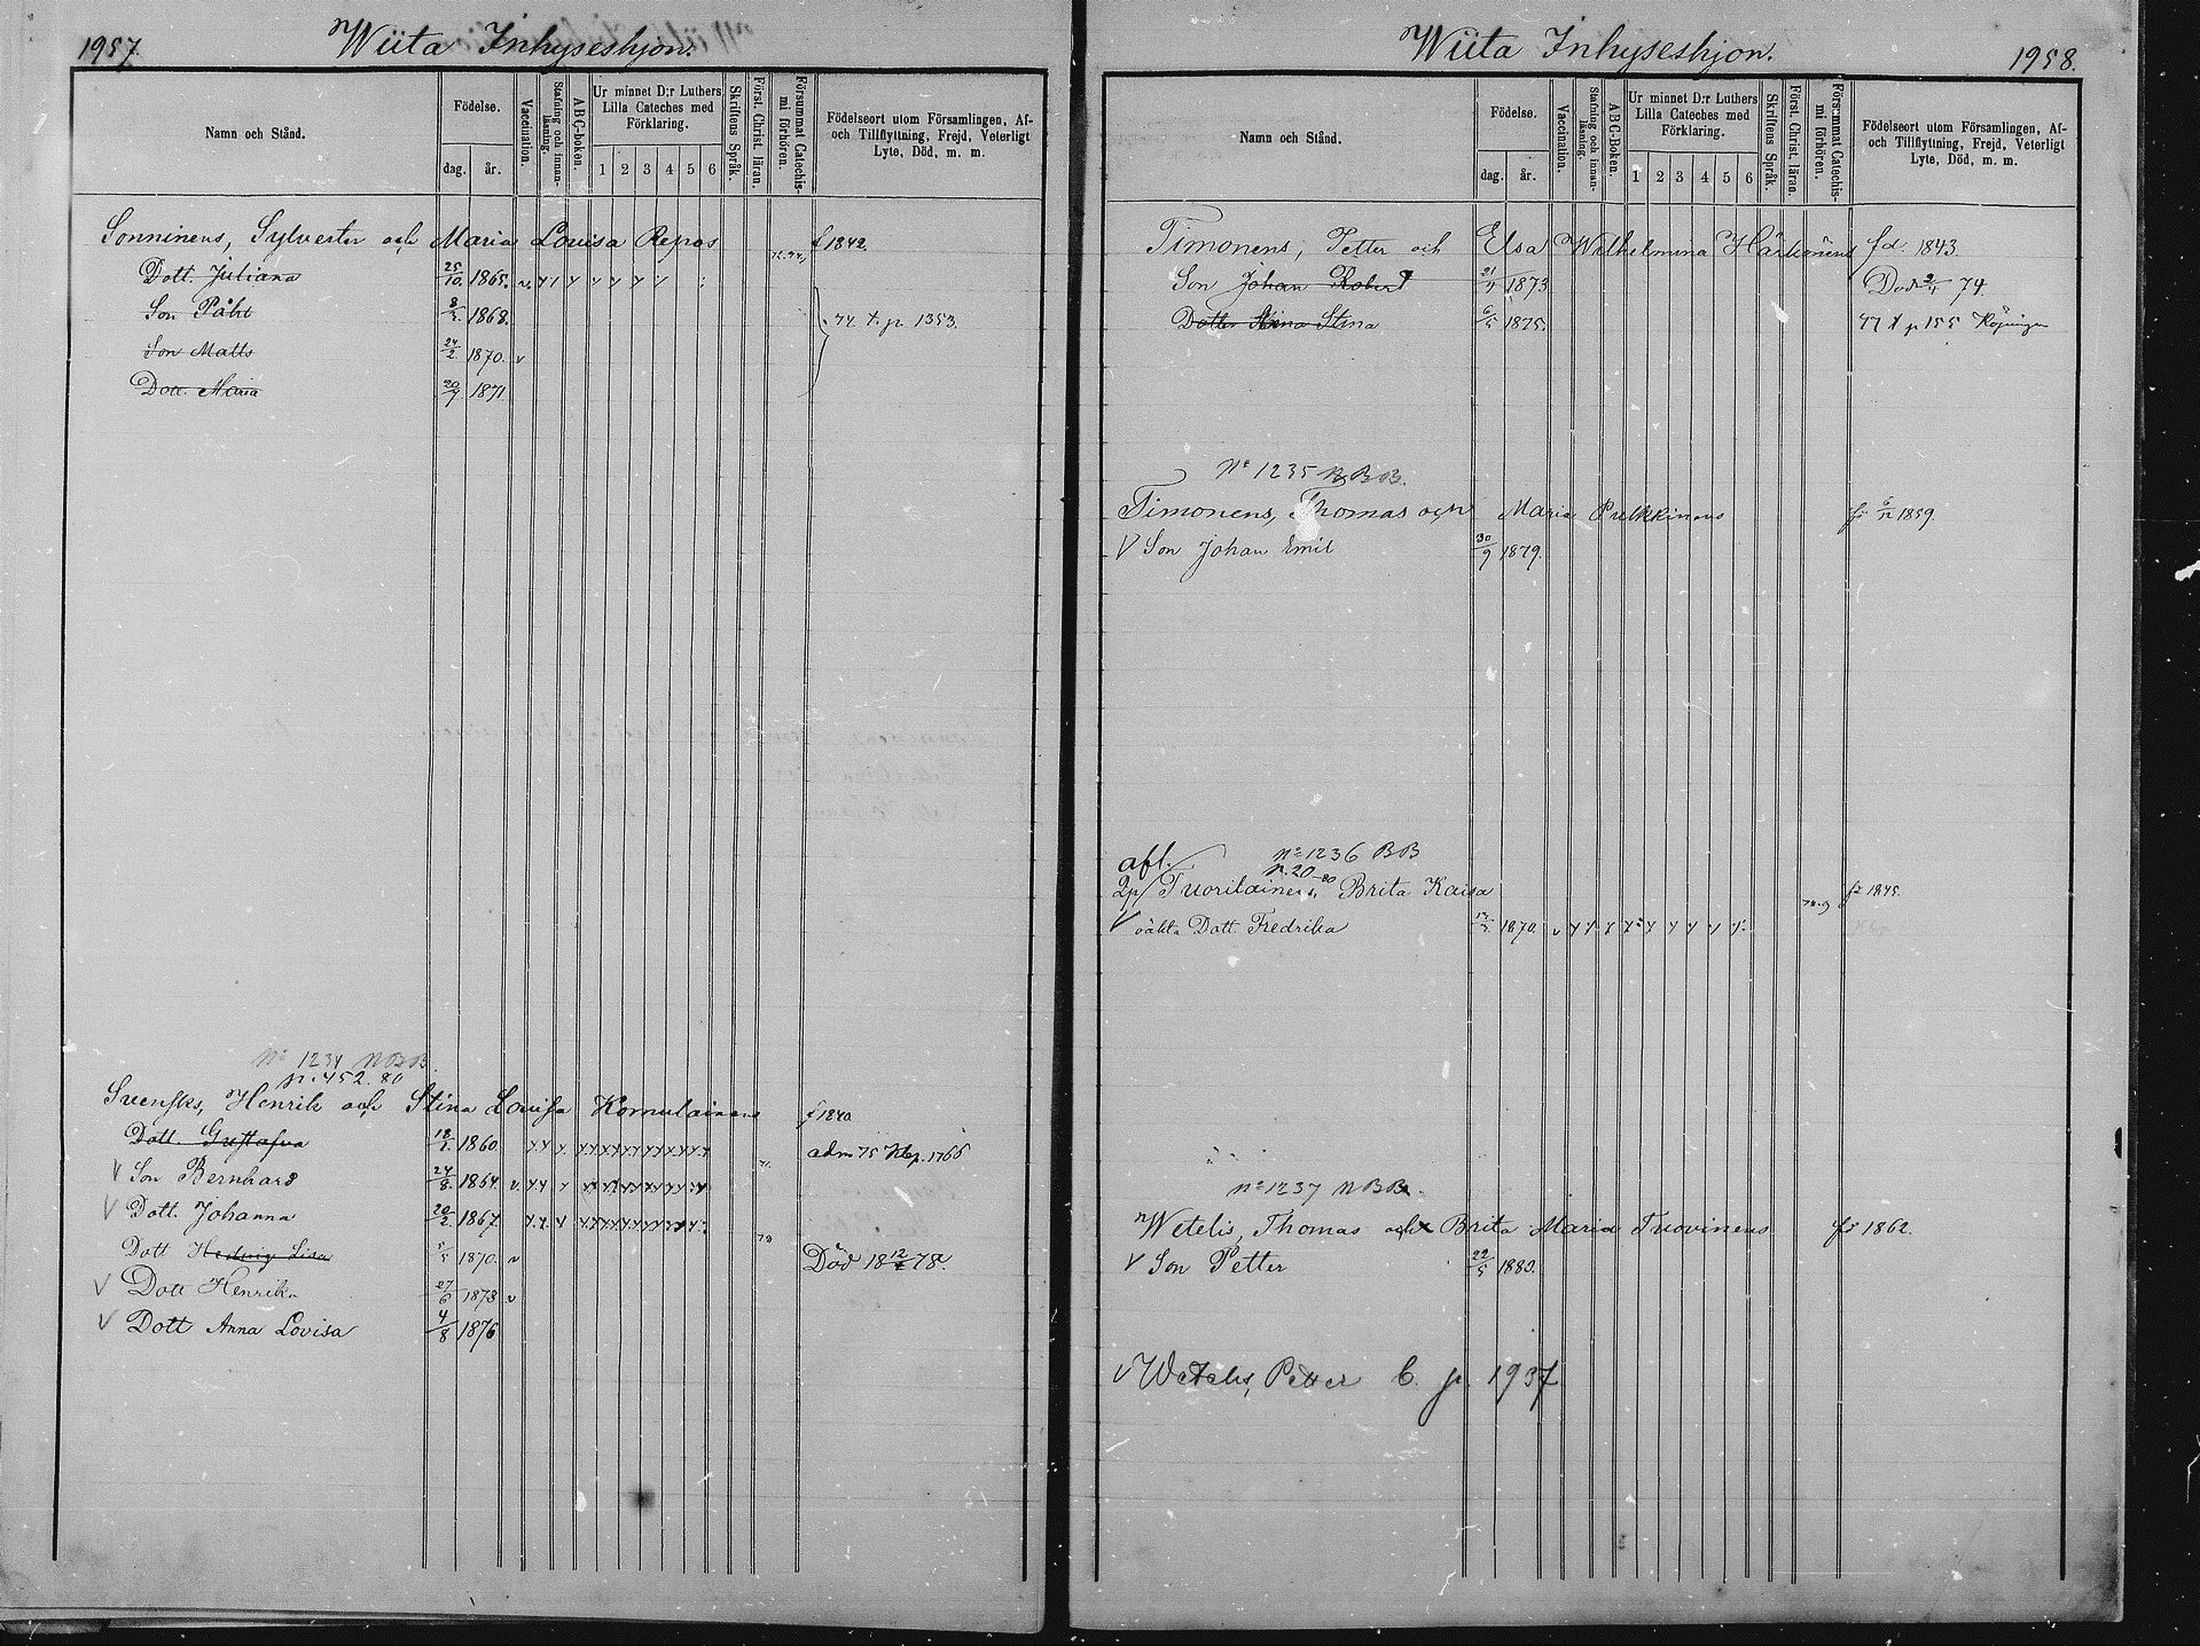 1957.
Wiita Inhyseshjon.
Namn och Stånd.
Födelse.
dag. år.
Vaccination.
Stafning och innan-läsning.
ABC-boken.
Ur minnet D:r Luthers Lilla Cateches med Förklaring.
1 2 3 4 5 6
Skriftens Språk.
Först. Christ. läran.
Försummat Catechis-mi förhören.
Födelseort utom Församlingen, Af- och Tillflyttning, Frejd, Veterligt Lyte, Död, m. m.
Sonninens, Sylvester och Maria Lovisa Repos f 1842
Dott. Juliana 25/10. 1865.
Son Påhl 1868.
74 t. p. 1353.
Son Matts 24/2. 1870. v
Dott. Maria 1871.
No 1234 NBB.
p. 452. 80
Svensks, Henrik och Stina Lovisa Komulainens f 1840
Dott. Gustafva 1860. adm 75
Son Bernhard 24/8. 1864. v.
Dott. Johanna 20/2. 1867.
Dott Hedvig Lisa 1870. v Död 18 12/ 78.
V Dott Henrika 27/6 1873 v
V Dott Anna Lovisa 4/8 1876
Wiita Inhyseshjon.
1958.
Namn och Stånd.
Födelse.
dag. år.
Vaccination.
Stafning och innan-läsning.
ABC-Boken.
Ur minnet D:r Luthers Lilla Cateches med Förklaring.
1 2 3 4 5 6
Skriftens Språk.
Först. Christ. läran.
Försummat Catechis-mi förhören.
Födelseort utom Församlingen, Af- och Tillflyttning, Frejd, Veterligt Lyte, Död, m. m.
Timonens, Petter och Elsa Wilhelmina Härkönens fd. 1843.
Son Johan Robert 1873 Död 74.
Dotter Stina 6/5 1875. 77 t p 155
No 1235 NBB.
Timonens, Thomas och Maria Pulkkinens 1859.
V Son Johan Emil 30/9 1879.
No 1236 BB
afl. p. 20 80
2p/ Tuorilainens, Brita Kaisa 1845.
V oäkta Dott. Fredrika 1870. v
No 1237 NBB.
Wetelis, Thomas och Brita Maria Tuovinens 1862.
V Son Petter 22/5 1880.
V Wetelis, Petter C. p. 1937.